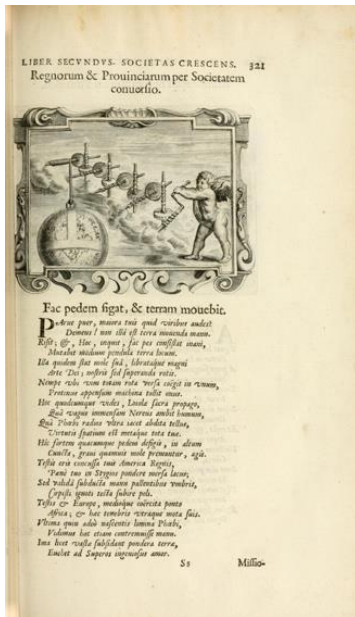 LIBER SECVNDVS. SOCIETAS CRESCENS. 321
Regnorum & Prouinciarum per Societatem
conuersio.
Fac pedem figat, & terram mouebit.
PArue puer, maiora tuis quid viribus audes?
Demens! non ista est terra mouenda manu.
Risit; &, Hoc, inquit, fac pes consistat inani,
Mutabit medium pendula terra locum.
Illa quidem stat mole suâ, librataque magni
Arte Dei; nostris sed superanda rotis.
Nempe vbi vim totam rota versa coëgit in vnum,
Protinus appensum machina tollit onus.
Hoc quodcumque vides, Loiolæ sacra propago,
Quà vagus immensum Nereus ambit humum,
Quà Phœbi radios vltra iacet abdita tellus,
Virtutis spatium est metaque tota tuæ.
Hîc fortem quacumque pedem defigis, in altum
Cuncta, graui quamuis mole premantur, agis.
Testis erit concussa tuis America Regnis,
Pænè suo in Stygios pondere mersa lacus;
Sed validâ subducta manu pallentibus vmbris,
Cœpisti ignoti tecta subire poli.
Testis & Europe, medioque coërcita ponto
Africa; & hæc tenebris vtraque mota suis.
Vltima quin adeò nascentis limina Phœbi,
Vidimus hac etiam contremuisse manu.
Ima licet vastæ subsidant pondera terræ,
Euehet ad Superos ingeniosus amor.
Ss Missio-